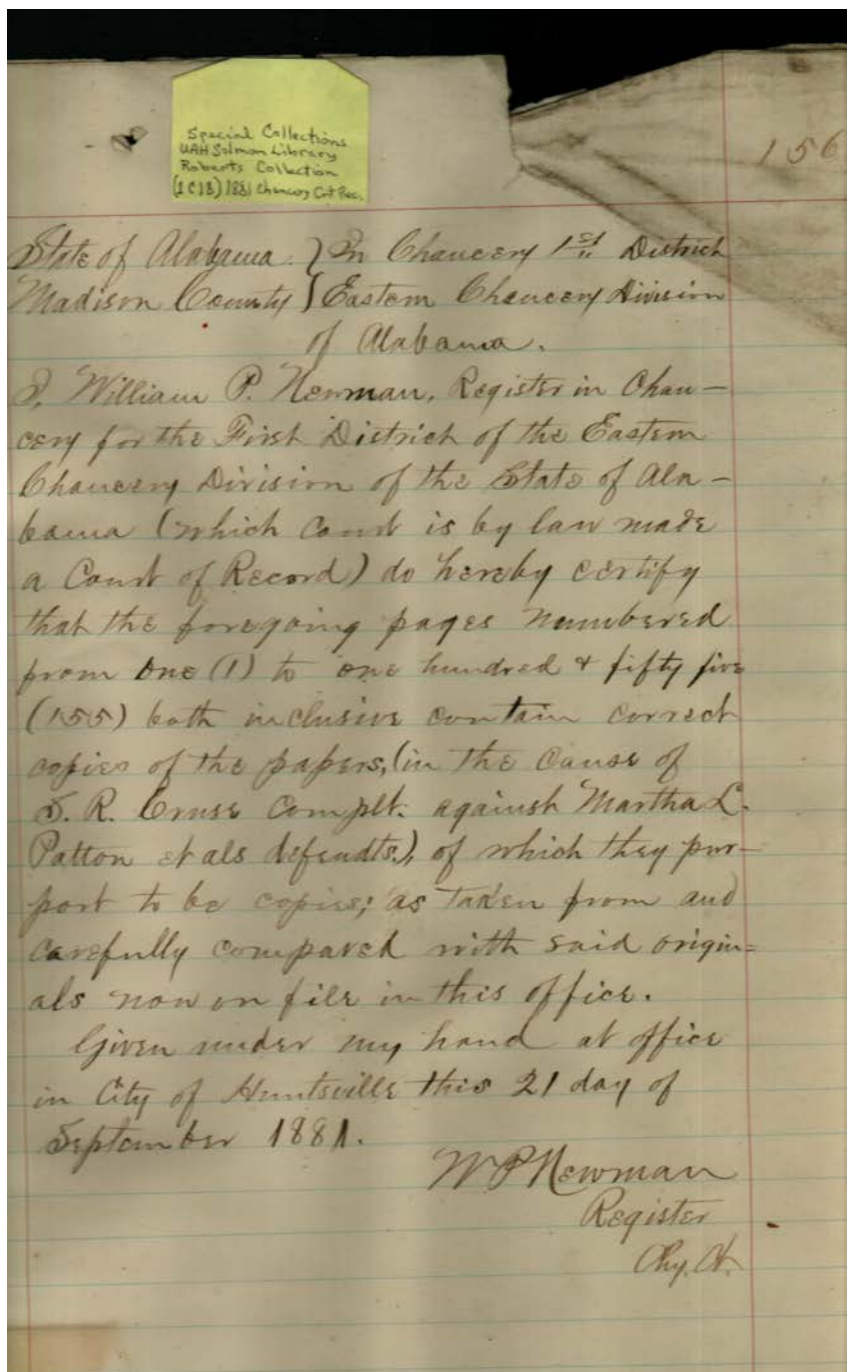 Special Collections
UAH Salmon Library
Roberts Collection
(1C1B) 1881 Chancery Crt Rec.
156
State of Alabama } In Chancery 1st District
Madison County } Eastern Chancery Division
of Alabama.
I, William P. Newman, Register in Chan-
cery for the First District of the Eastern
Chancery Division of the State of Ala-
bama (which Court is by law made
a Court of Record) do hereby certify
that the foregoing pages numbered
from One (1) to one hundred & fifty five
(155) both inclusive contain correct
copies of the papers, (in the Cause of
S. R. Cruse Complt. against Martha L.
Patton et als defendts.), of which they pur-
port to be copies; as taken from and
carefully compared with said origin=
als now on file in this office.
Given under my hand at office
in City of Huntsville this 21 day of
September 1881.
W P Newman
Register
Chy. Ct.